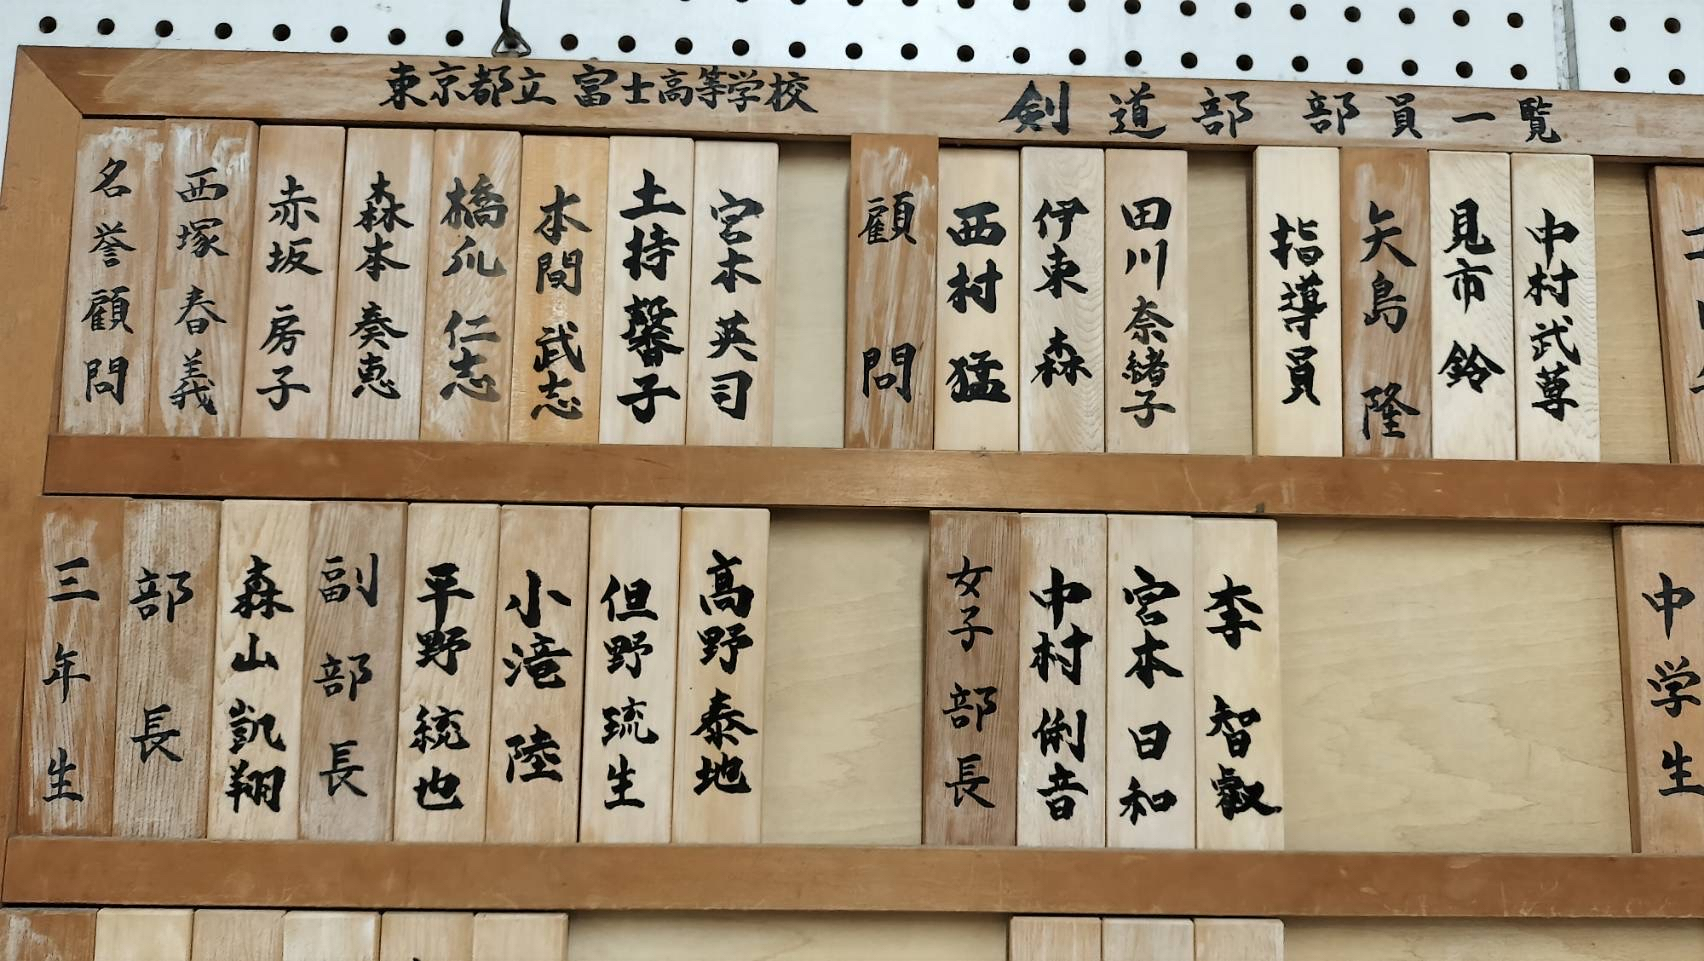 東京都立 富士高等学校 剣道部 部員一覧
名誉顧問
西塚 春義
赤坂 房子
森本 奏恵
橋爪 仁志
本間 武志
土持 馨子
宮本 英司
顧問
西村 猛
伊東 森
田川 奈緒子
指導員
矢島 隆
見市 鈴
中村 武尊
三年生
部長
森山 凱翔
副部長
平野 統也
小滝 陸
但野 琉生
高野 泰地
女子部長
中村 俐音
宮本 日和
李 智叡
中学生